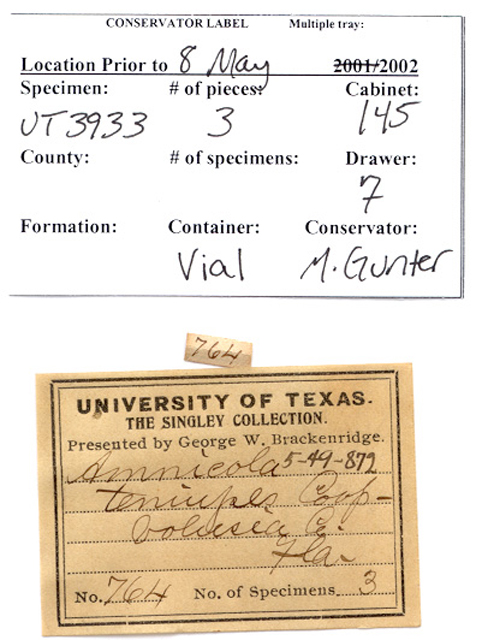 CONSERVATOR LABEL Multiple tray:
Location Prior to 8 May 2001/2002
Specimen: # of pieces: Cabinet:
UT3933 3 145
County: # of specimens: Drawer:
7
Formation: Container: Conservator:
Vial M. Gunter
764
UNIVERSITY OF TEXAS.
THE SINGLEY COLLECTION.
Presented by George W. Brackenridge.
Amnicola 5-49-872
tenuipes Coop-
Volusia Co.
Fla-
No. 764 No. of Specimens. 3